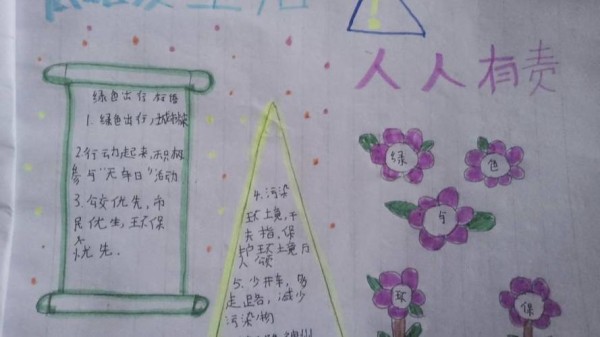 生活
人人有责
绿色出行标语
1. 绿色出行,
2.行动起来,积极
参与"无车日"活动
3.公交优先,市
民优先,环保
优先.
4.污染
环境,千
夫指,保
护环境万
人颂
5.少开车,多
走路,减少
污染物
绿
色
与
环
保